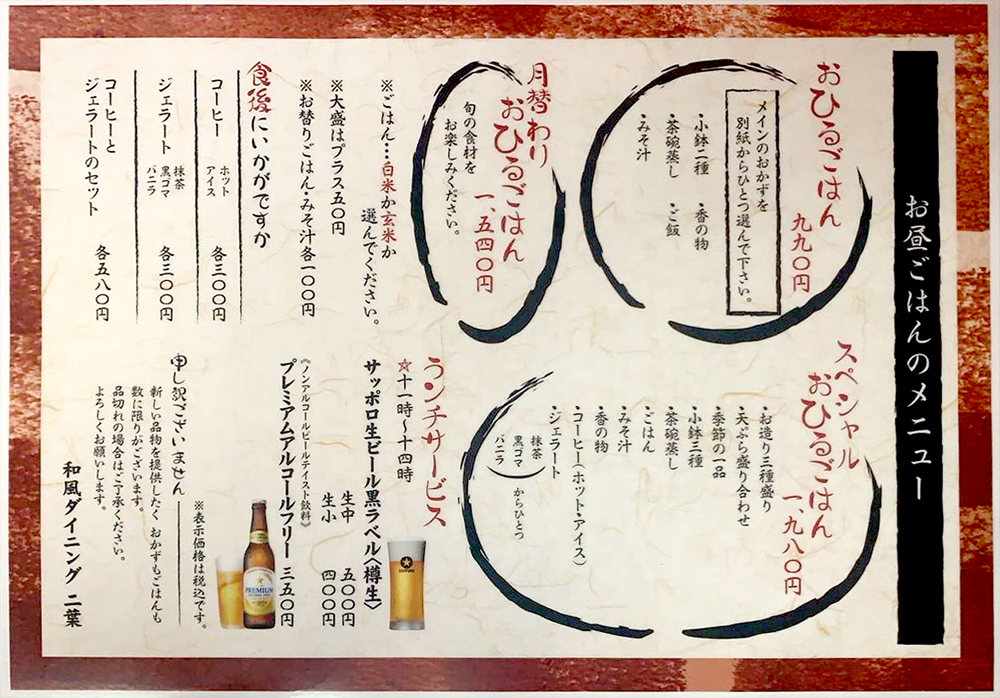 お昼ごはんのメニュー
おひるごはん
九九〇円
メインのおかずを
別紙からひとつ選んで下さい。
・小鉢二種
・香の物
・茶碗蒸し
・ご飯
・みそ汁
月替わり
おひるごはん
一、五四〇円
旬の食材を
お楽しみください。
※ごはん…白米か玄米か
選んでください。
※大盛はプラス五〇円
※お替りごはん・みそ汁各一〇〇円
食後にいかがですか
コーヒー
ホット
アイス
各三〇〇円
ジェラート
抹茶
黒ゴマ
バニラ
各三〇〇円
コーヒーと
ジェラートのセット
各五八〇円
スペシャル
おひるごはん
一、九八〇円
・お造り三種盛り
・天ぷら盛り合わせ
・季節の一品
・小鉢三種
・茶碗蒸し
・ごはん
・みそ汁
・香の物
・コーヒー(ホット・アイス)
・ジェラート
抹茶
黒ゴマ
バニラ
からひとつ
ランチサービス
☆十一時〜十四時
サッポロ生ビール黒ラベル〈樽生〉
生中 五〇〇円
生小 四〇〇円
《ノンアルコールビールテイスト飲料》
プレミアムアルコールフリー 三五〇円
PREMIUM
※表示価格は税込です。
申し訳ございません
新しい品物を提供したく おかずもごはんも
数に限りがございます。
品切れの場合はご了承ください。
よろしくお願いします。
和風ダイニング 二葉